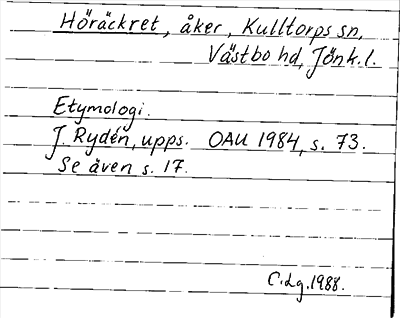 Höräckret, åker, Kulltorps sn,
Västbo hd, Jönk.l.
Etymologi.
J. Rydén, upps. OAU 1984, s. 73.
Se även s. 17.
C.Lg.1988.